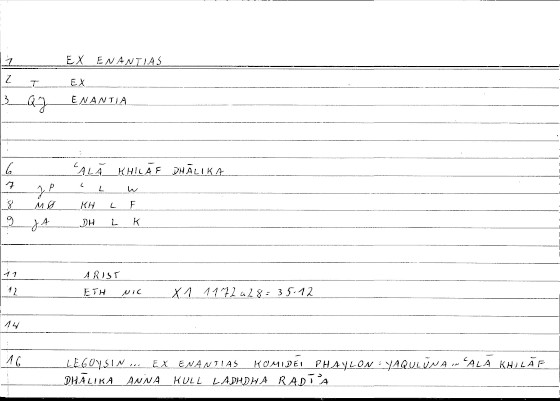 1 EX ENANTIAS
2 T EX
3 QJ ENANTIA
6 ʿALĀ KHILĀF DHĀLIKA
7 JP ʿ L W
8 MØ KH L F
9 JA DH L K
11 ARIST
12 ETH NIC X1 1172a28 = 35.12
14
16 LEGOYSIN... EX ENANTIAS KOMIDĒI PHAYLON : YAQULŪNA... ʿALĀ KHILĀF
DHĀLIKA ANNA KULL LADHDHA RADĪʾA